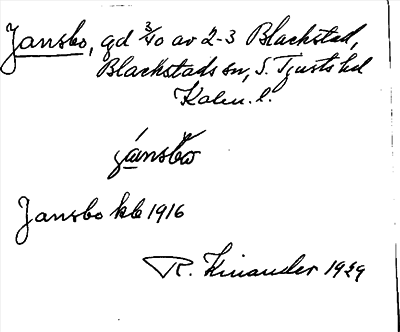 Jansbo, gd 3/40 av 2-3 Blackstad,
Blackstads sn, S. Tjusts hd
Kalm. l.
jánsbo
Jansbo kb 1916
R. Kinander 1929